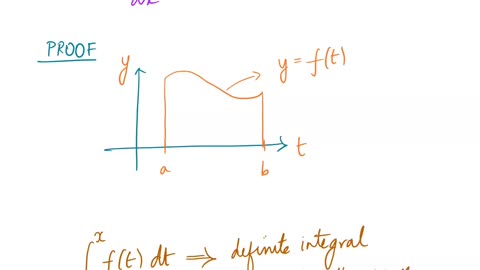 PROOF
y
y = f(t)
t
a
b
∫ˣ f(t) dt ⟹ definite integral